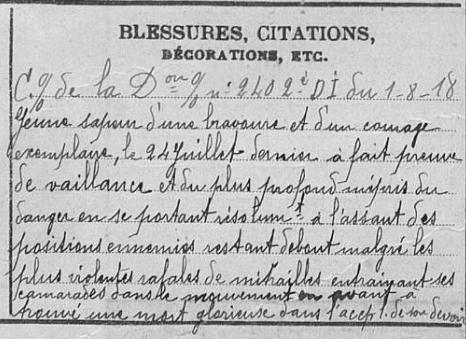 BLESSURES, CITATIONS,
DÉCORATIONS, ETC.
C. g de la Don g n: 240 2e DI du 1-8-18
Jeune sapeur d'une bravoure et d'un courage
exemplaire, le 24 Juillet dernier à fait preuve
de vaillance et du plus profond mépris du
danger en se portant résolumt à l'assaut des
positions ennemies restant debout malgré les
plus violentes rafales de mitrailles entrainant ses
camarades dans le mouvement en avant à
trouvé une mort glorieuse dans l'accept. de son devoir